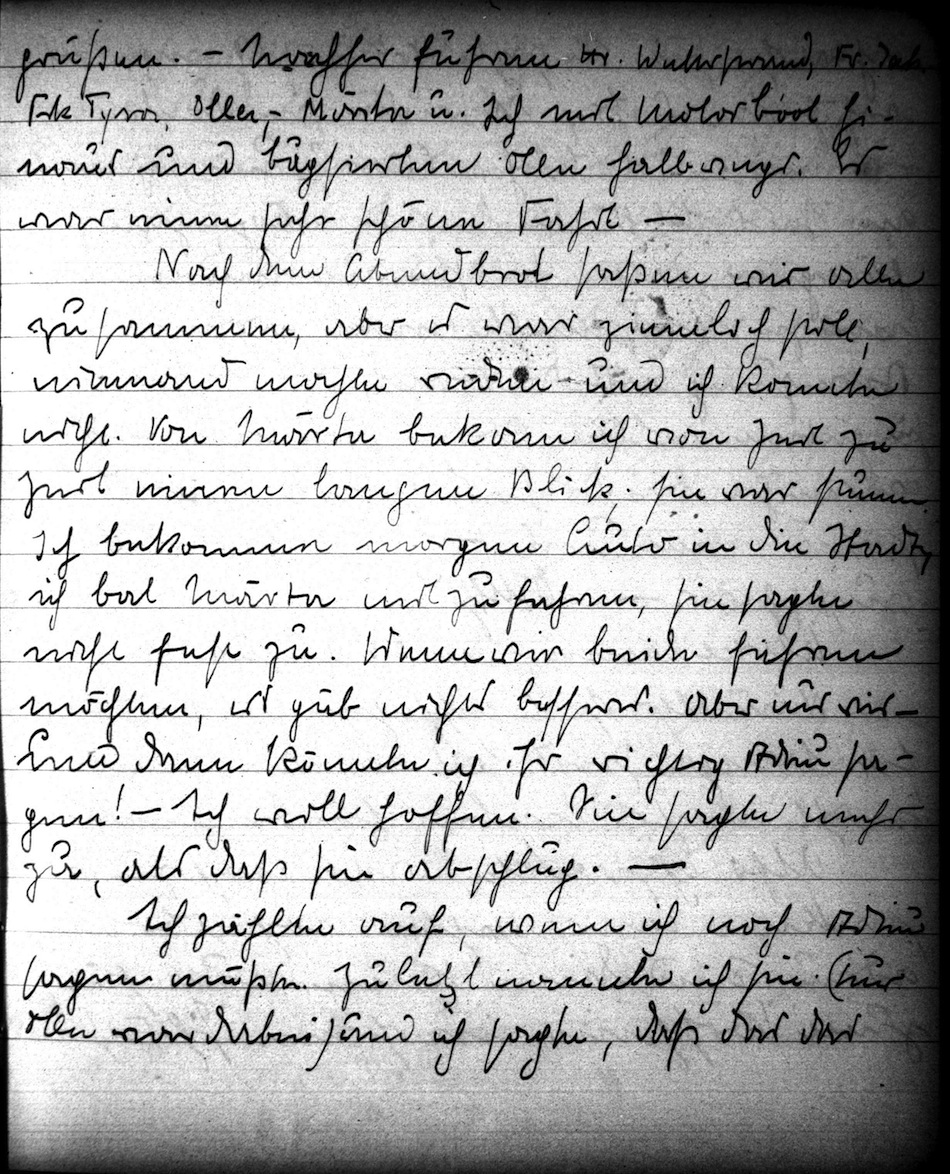 grüßen. – Nachher fuhren Hr. Wetterstrand, Fr.
Frk Tyra, Olle, – Märta u. Ich mit Motorboot hi-
naus und bugsierten Olle halbwegs. Es
war eine sehr schöne Fahrt —
Nach dem Abendbrot saßen wir alle
zusammen, aber es war ziemlich still,
niemand mochte reden und ich konnte
nicht. Von Märta bekam ich von Zeit zu
Zeit einen langen Blick, sie war stumm.
Ich bekomme morgen Auto in die Stadt,
ich bat Märta mitzufahren, sie sagte
nicht fest zu. Wenn wir beide fahren
möchten, es gäb nichts besseres. Aber nur wir –
und dann könnte ich Ihr richtig Adiu sa-
gen! – Ich will hoffen. Sie sagte mehr
zu, als daß sie abschlug. —
Ich zählte auf, wem ich noch Adiu
sagen müßte. Zuletzt nannte ich sie. (nur
Olle war dabei) und ich sagte, daß das das